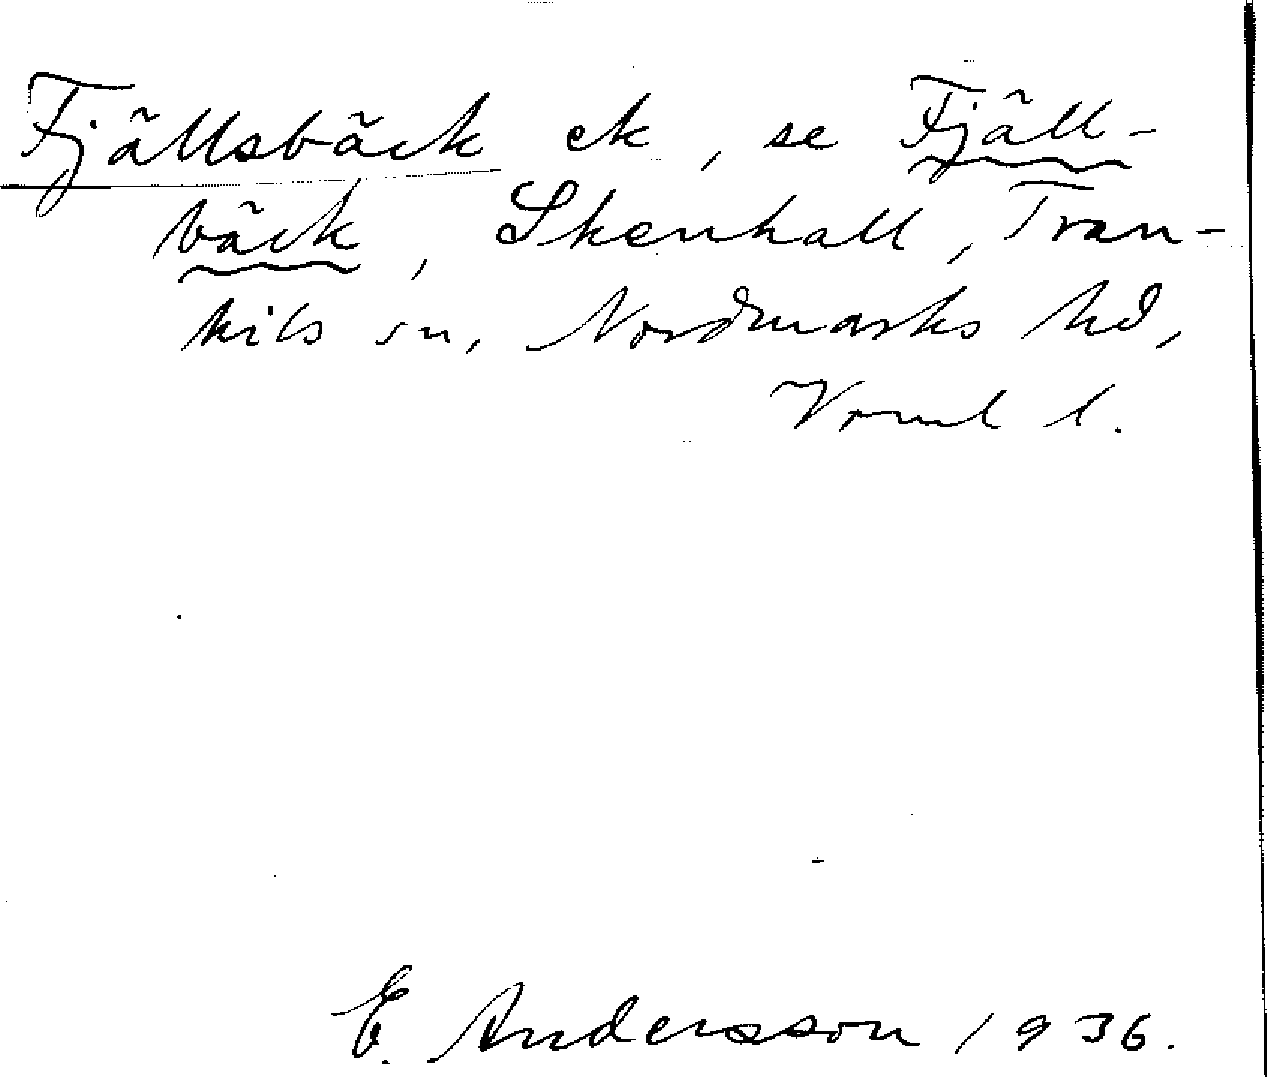 Fjällsbäck ek, se Fjäll-
bäck, Skenhall, Tran-
kils sn, Nordmarks hd,
Vrml l.
E. Andersson 1936.